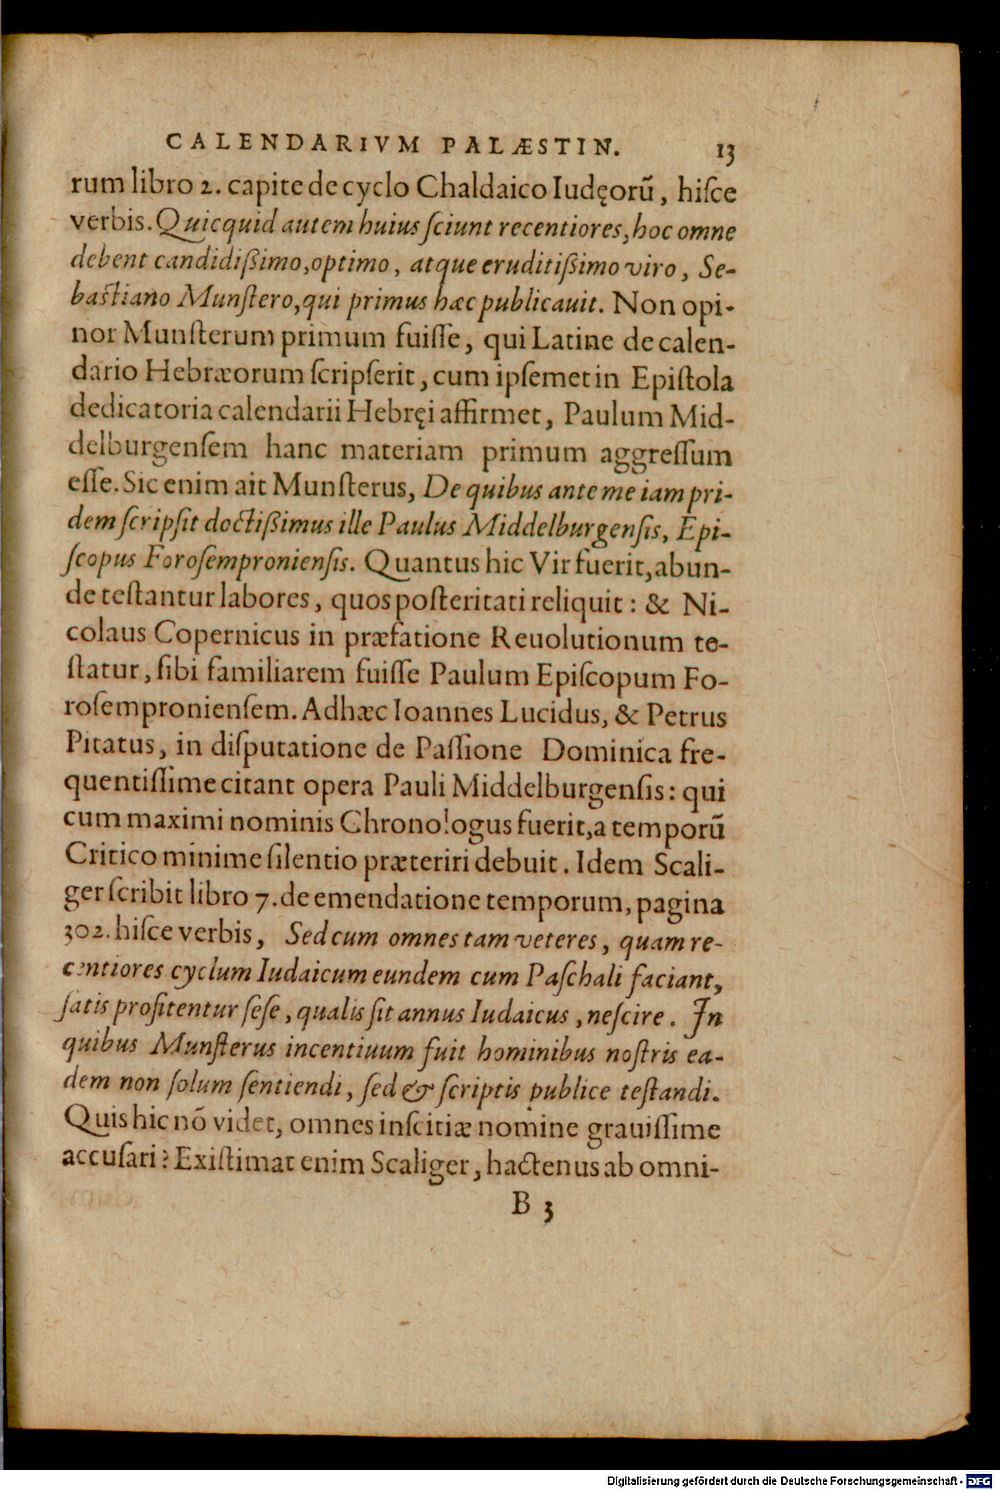 CALENDARIVM PALÆSTIN. 13
rum libro 2. capite de cyclo Chaldaico Iudęorũ, hiſce
verbis. Quicquid autem huius ſciunt recentiores, hoc omne
debent candidiſſimo, optimo, atque eruditiſſimo viro, Se-
baſtiano Munſtero, qui primus hæc publicauit. Non opi-
nor Munſterum primum fuiſſe, qui Latine de calen-
dario Hebræorum ſcripſerit, cum ipſemet in Epiſtola
dedicatoria calendarii Hebręi affirmet, Paulum Mid-
delburgenſem hanc materiam primum aggreſſum
eſſe. Sic enim ait Munſterus, De quibus ante me iam pri-
dem ſcripſit doctiſſimus ille Paulus Middelburgenſis, Epi-
ſcopus Foroſempronienſis. Quantus hic Vir fuerit, abun-
de teſtantur labores, quos poſteritati reliquit: & Ni-
colaus Copernicus in præfatione Reuolutionum te-
ſtatur, ſibi familiarem fuiſſe Paulum Epiſcopum Fo-
roſempronienſem. Adhæc Ioannes Lucidus, & Petrus
Pitatus, in diſputatione de Paſſione Dominica fre-
quentiſſime citant opera Pauli Middelburgenſis: qui
cum maximi nominis Chronologus fuerit, a temporũ
Critico minime ſilentio præteriri debuit. Idem Scali-
ger ſcribit libro 7. de emendatione temporum, pagina
302. hiſce verbis, Sed cum omnes tam veteres, quam re-
centiores cyclum Iudaicum eundem cum Paſchali faciant,
ſatis profitentur ſeſe, qualis ſit annus Iudaicus, neſcire. In
quibus Munſterus incentiuum fuit hominibus noſtris ea-
dem non ſolum ſentiendi, ſed & ſcriptis publice teſtandi.
Quis hic nõ videt, omnes inſcitiæ nomine grauiſſime
accuſari? Exiſtimat enim Scaliger, hactenus ab omni-
B 3
Digitalisierung gefördert durch die Deutsche Forschungsgemeinschaft - DFG